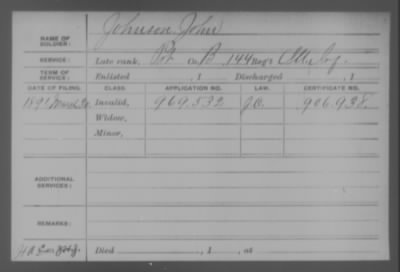 NAME OF SOLDIER: Johnson, John
SERVICE: Late rank, Pvt Co. B 144 Reg't
TERM OF SERVICE: Enlisted , 1 Discharged , 1
DATE OF FILING. CLASS. APPLICATION NO. LAW. CERTIFICATE NO.
1891 March 30 Invalid, 969.532 906.938
Widow,
Minor,
ADDITIONAL SERVICES:
REMARKS:
Died , 1 , at